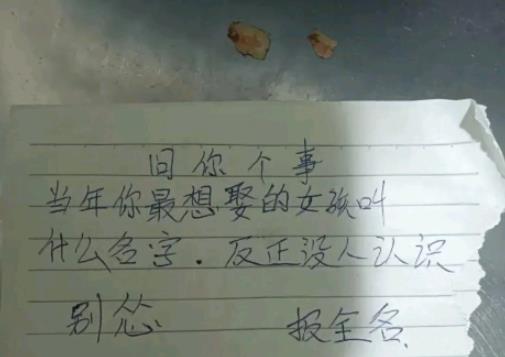 问你个事
当年你最想娶的女孩叫
什么名字.反正没人认识
别怂 报全名.